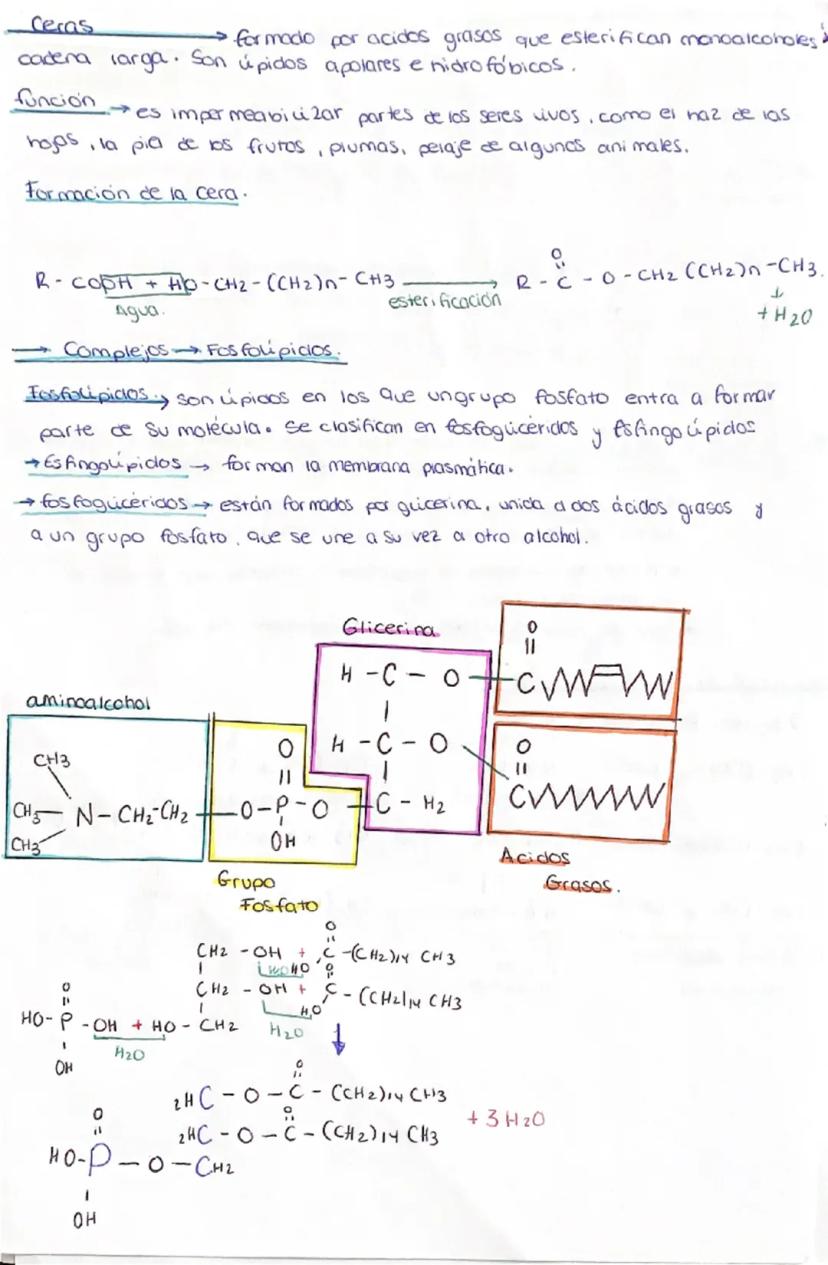 Ceras → formado por acidos grasos que esterifican monoalcoholes
cadena larga. Son lípidos apolares e hidrofóbicos.
función → es impermeabilizar partes de los seres vivos, como el haz de las
hojas, la piel de los frutos, plumas, pelaje de algunos animales.
Formación de la cera.
O
R - COOH + HO - CH2 - (CH2)n - CH3 → R - C - O - CH2 (CH2)n - CH3.
Agua. esterificación + H2O
→ Complejos → Fosfolípidos.
Fosfolípidos → son lípidos en los que un grupo fosfato entra a formar
parte de su molécula. Se clasifican en fosfoglicéridos y Esfingolípidos
→ Esfingolípidos → forman la membrana plasmática.
→ fosfoglicéridos → están formados por glicerina, unida a dos ácidos grasos y
a un grupo fosfato, que se une a su vez a otro alcohol.
Glicerina
O
H - C - O - C
aminoalcohol
CH3 O H - C - O O
CH3 - N - CH2 - CH2 - O - P - O - C - H2 C
CH3 OH
Acidos
Grasos.
Grupo
Fosfato
O
CH2 - OH + C - (CH2)14 CH3
HO O
CH2 - OH + C - (CH2)14 CH3
O HO
HO - P - OH + HO - CH2 H2O
H2O
OH
O
2HC - O - C - (CH2)14 CH3
+ 3 H2O
O O
2HC - O - C - (CH2)14 CH3
HO - P - O - CH2
OH